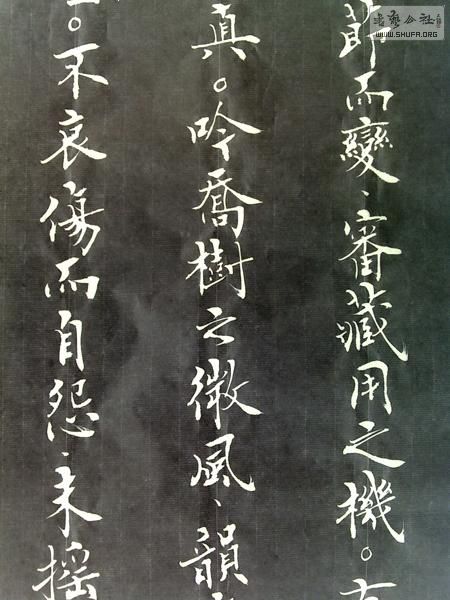 書藝公社
WWW.SHUFA.ORG
節而變、審藏用之機。有
真。吟喬樹之微風、韻
。不哀傷而自怨、未搖